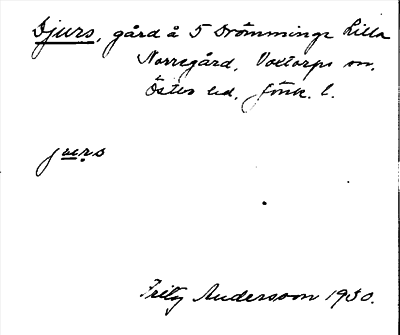 Djurs, gård å 5 Drömminge Lilla
Norregård, Voxtorps sn,
Östbo hd, Jönk. l.
jurs
Fritz Andersson 1930.